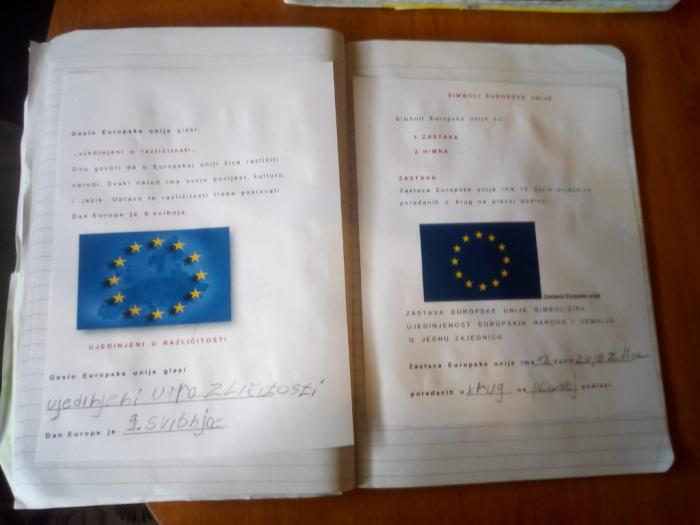 Geslo Europske unije glasi
„ujedinjeni u različitosti„
Ono govori da u Europskoj uniji žive različiti
narodi. Svaki narod ima svoju povijest, kulturu,
i jezik. Upravo te različitosti treba poštovati
Dan Europe je 9.svibnja
UJEDINJENI U RAZLIČITOSTI
Geslo Europske unije glasi
ujedinjeni u različitosti
Dan Europe je 9. svibnja
SIMBOLI EUROPSKE UNIJE
Simboli Europske unije su:
1. ZASTAVA
2. HIMNA
ZASTAVA
Zastava Europske unije ima 12 žutih zvjezdica
poredanih u krug na plavoj podlozi.
Zastava Europske unije
ZASTAVA EUROPSKE UNIJE SIMBOLIZIRA
UJEDINJENOST EUROPSKIH NARODA I ZEMALJA
U JEDNU ZAJEDNICU.
Zastava Europske unije ima 12 žutih zvjezdica
poredanih u krug na plavoj podlozi.